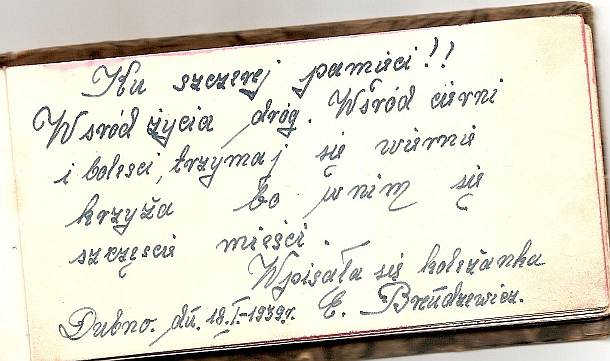 Ku szczerej pamięci!!
Wśród życia dróg. Wśród cierni
i boleści, trzymaj się wiernie
krzyża bo w nim się
szczęście mieści.
Wpisała się koleżanka
E. Brudzewicz.
Dubno. dń. 18.I-1939r.